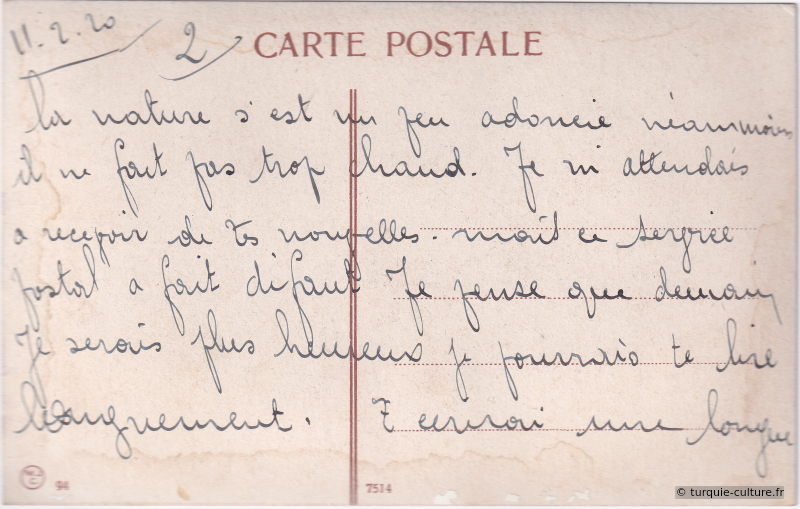 11.2.20
2
CARTE POSTALE
la nature s'est un peu adoucie néanmoins
il ne fait pas trop chaud. Je m'attendais
a recevoir de tes nouvelles. mais ce service
postal a fait difaut Je pense que demain
Je serais plus heureux je pourrais te lire
longuement. T ecrirai une longue
94
7514
© turquie-culture.fr